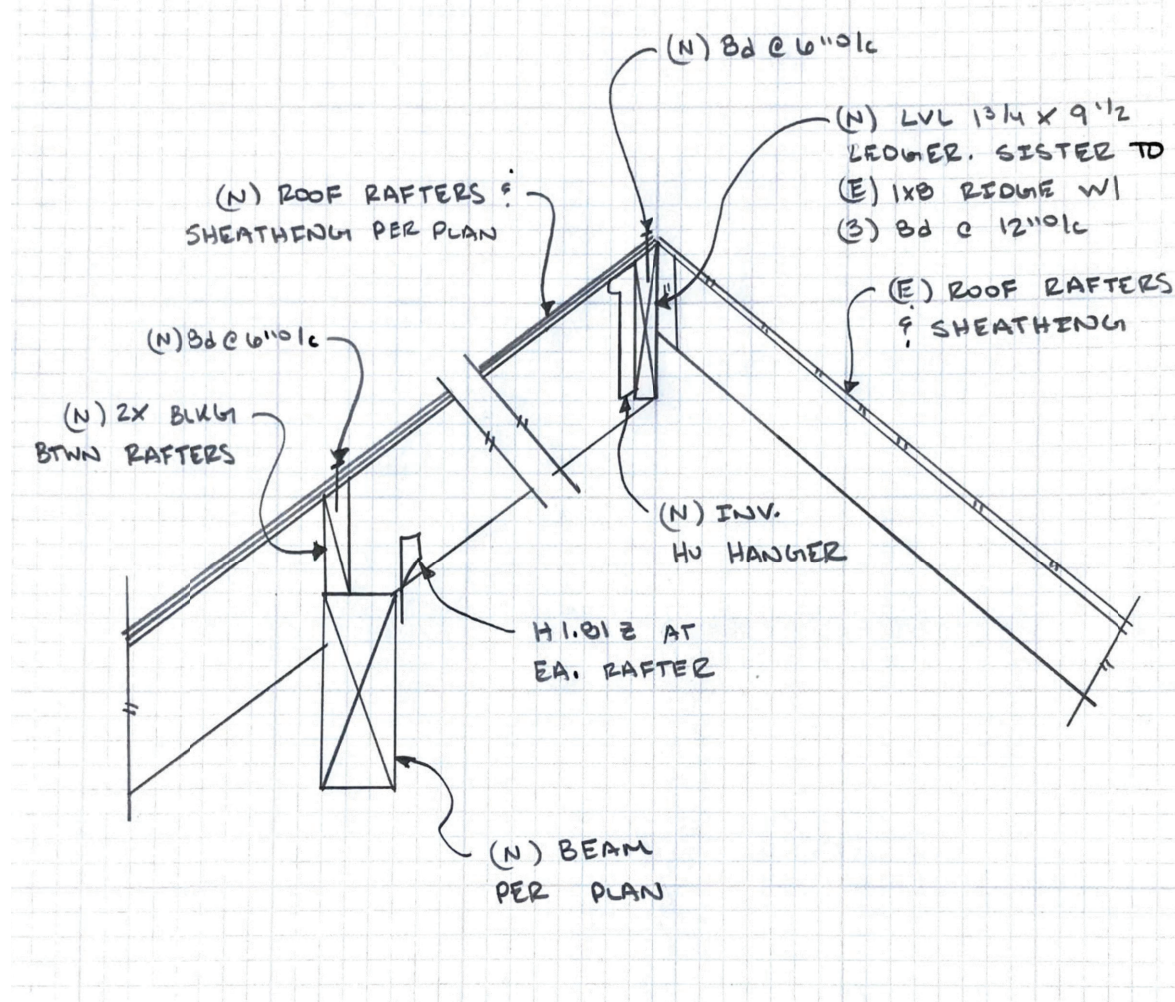 (N) 8d @ 6" o/c
(N) LVL 1 3/4 x 9 1/2
LEDGER. SISTER TO
(E) 1x8 RIDGE W/
(3) 8d @ 12" o/c
(N) ROOF RAFTERS &
SHEATHING PER PLAN
(E) ROOF RAFTERS
& SHEATHING
(N) 8d @ 6" o/c
(N) 2X BLKG
BTWN RAFTERS
(N) INV.
HU HANGER
H1.81Z AT
EA. RAFTER
(N) BEAM
PER PLAN